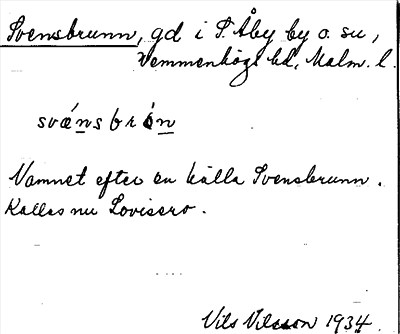 Svensbrunn, gd i S. Åby by o. su,
Vemmenhögs hd, Malm. l.
svǽnsbrón
Namnet efter en källa Svensbrunn.
Kallas nu Lovisero.
Nils Nilsson 1934.